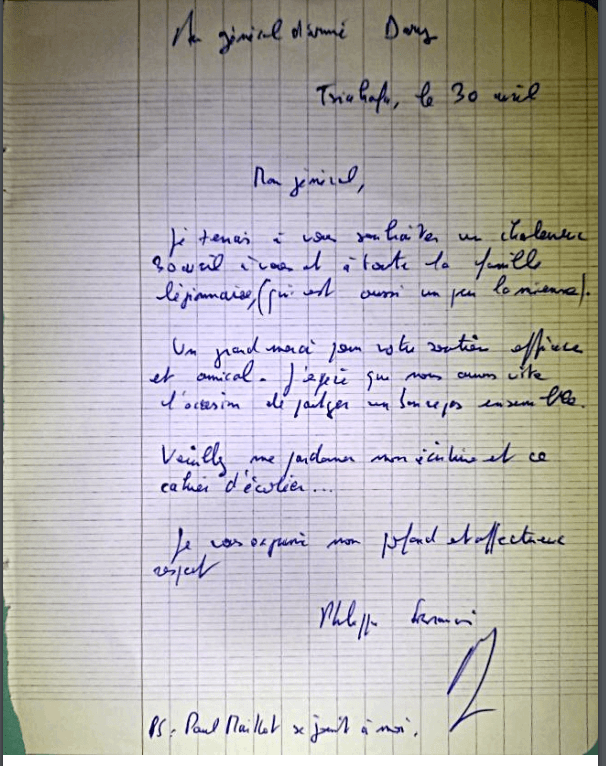 Au général d'armée Dary
Tsiahafy, le 30 avril
Mon général,
Je tenais à vous souhaiter un chaleureux
30 avril à vous et à toute la famille
légionnaire, (qui est aussi un peu la mienne).
Un grand merci pour votre soutien efficace
et amical. J'espère que nous aurons vite
l'occasion de partager un bon repas ensemble.
Veuillez me pardonner mon écriture et ce
cahier d'écolier...
Je vous exprime mon profond et affectueux
respect
Philippe
PS: Paul Maillot se joint à moi.